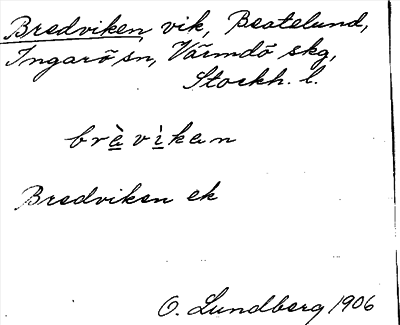 Bredviken, vik, Beatelund,
Ingarö sn, Värmdö skg,
Stockh. l.
brὲvìkan
Bredviken ek
O. Lundberg 1906